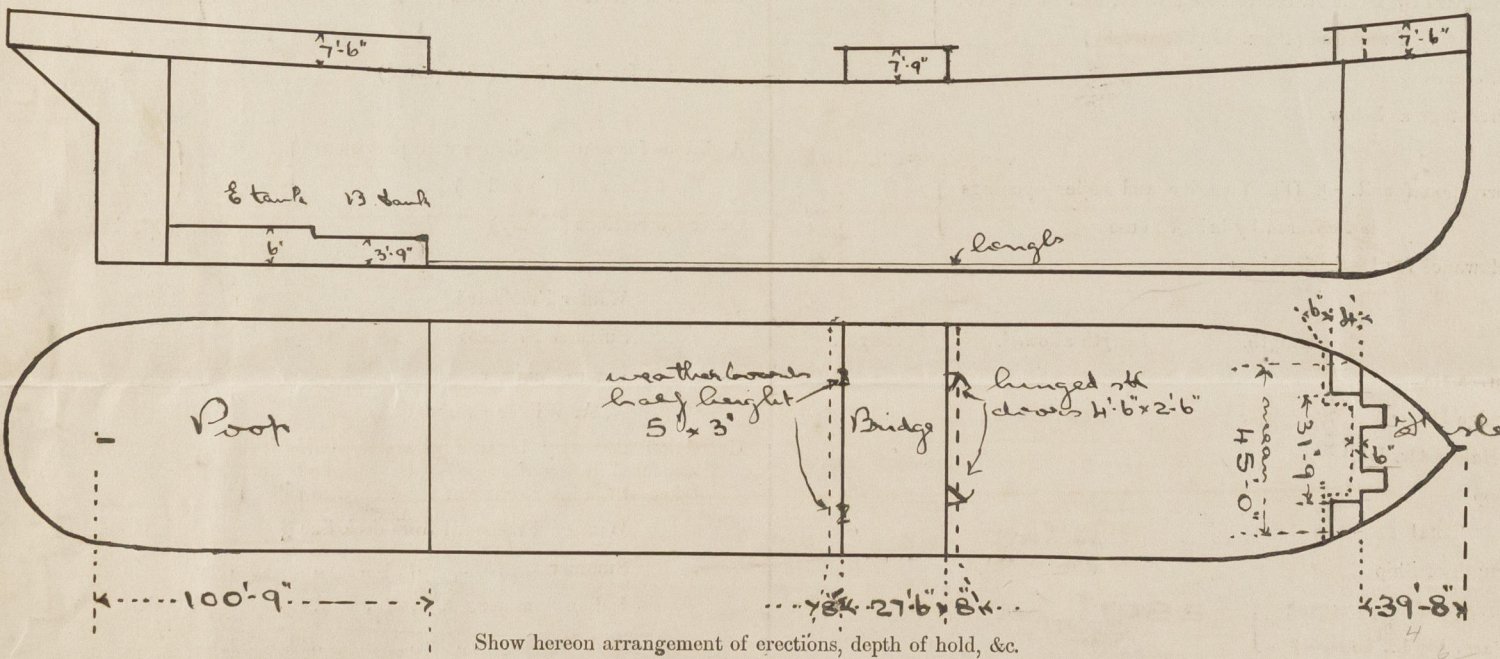 7'-6"
7'-9"
7'-6"
E tank B tank
6'
3'-9"
longls
6" 4'
weatherboards
half height
5 x 3'
Bridge
hinged stl
doors 4'-6" x 2'-6"
Poop
mean 45'-0"
31'-9"
100'-9"
8" 27'-6" 8"
39'-8"
Show hereon arrangement of erections, depth of hold, &c.